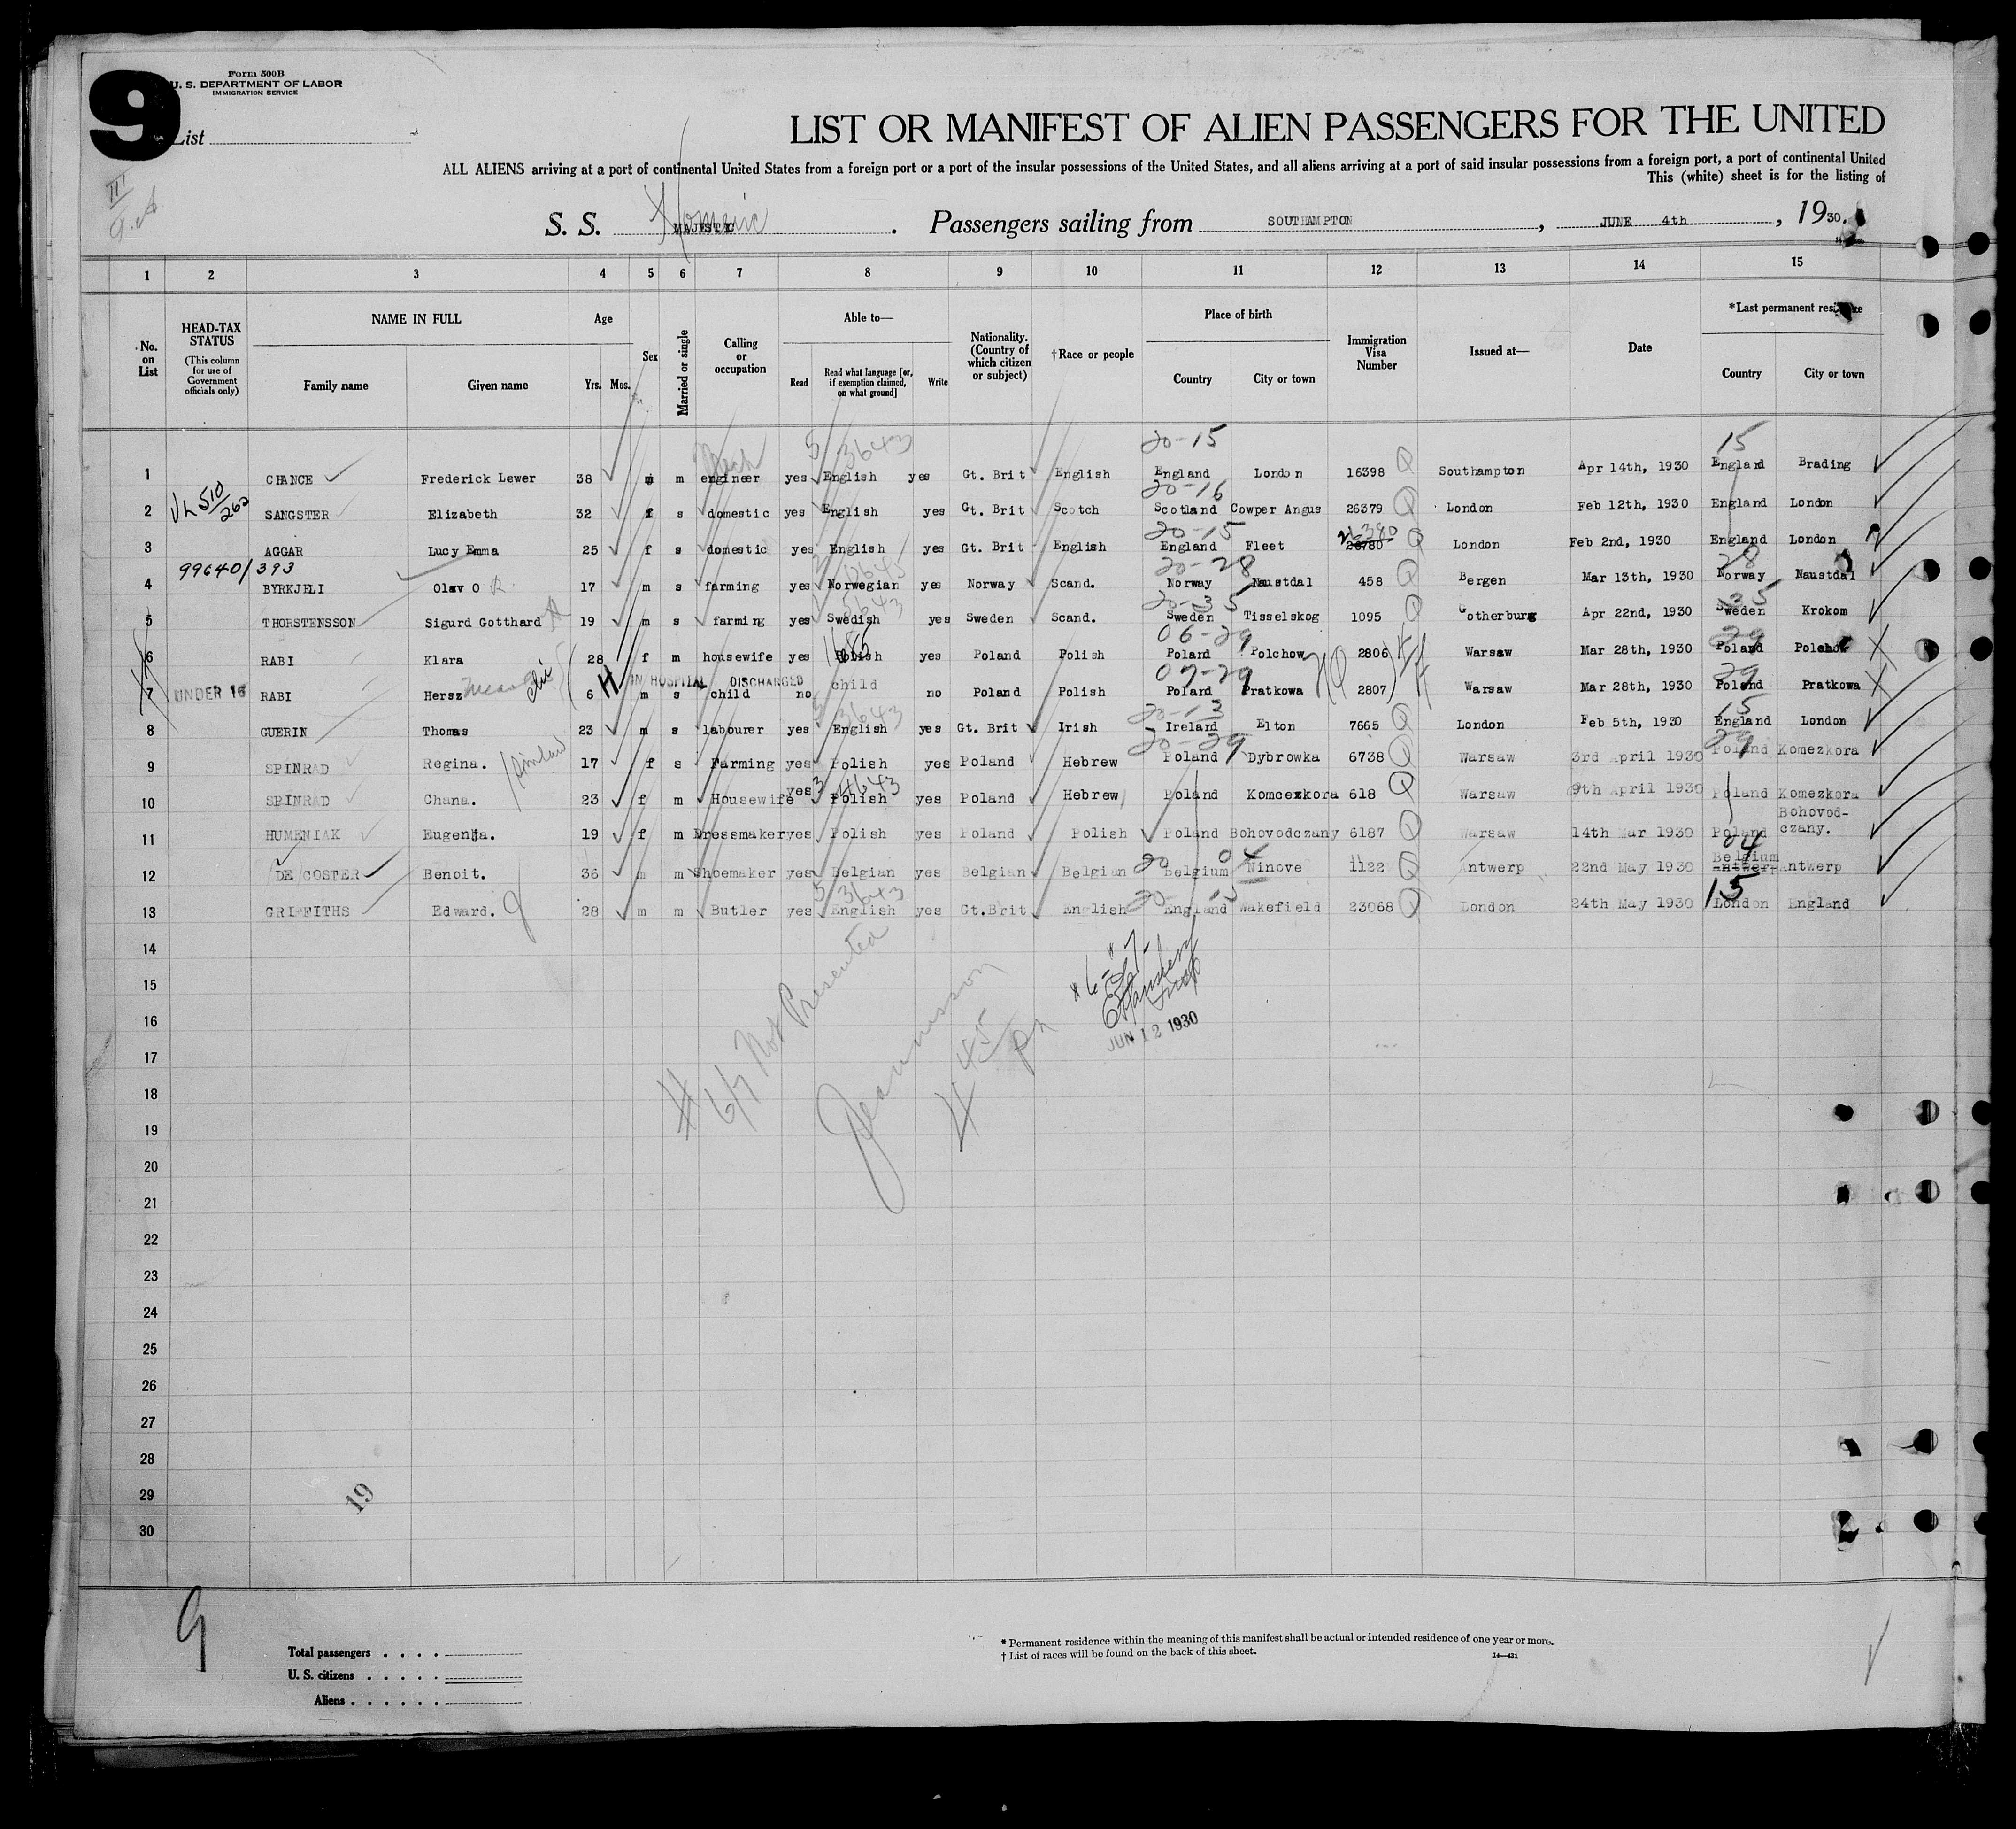 9
Form 500B
U. S. DEPARTMENT OF LABOR
IMMIGRATION SERVICE
List
LIST OR MANIFEST OF ALIEN PASSENGERS FOR THE UNITED
ALL ALIENS arriving at a port of continental United States from a foreign port or a port of the insular possessions of the United States, and all aliens arriving at a port of said insular possessions from a foreign port, a port of continental United
This (white) sheet is for the listing of
S. S. MAJESTIC Homeric . Passengers sailing from SOUTHAMPTON , JUNE 4th , 1930.
1 2 3 4 5 6 7 8 9 10 11 12 13 14 15
No. on List
HEAD-TAX STATUS (This column for use of Government officials only)
NAME IN FULL Family name Given name
Age Yrs. Mos.
Sex
Married or single
Calling or occupation
Able to— Read Read what language [or, if exemption claimed, on what ground] Write
Nationality. (Country of which citizen or subject)
†Race or people
Place of birth Country City or town
Immigration Visa Number
Issued at—
Date
*Last permanent residence Country City or town
20-15 15
1 CHANCE Frederick Lewer 38 m m Mech engineer yes English yes Gt. Brit English England London 16398 Southampton Apr 14th, 1930 England Brading
510/262 20-16
2 SANGSTER Elizabeth 32 f s domestic yes English yes Gt. Brit Scotch Scotland Cowper Angus 26379 London Feb 12th, 1930 England London
20-15
3 AGGAR Lucy Emma 25 f s domestic yes English yes Gt. Brit English England Fleet 26780 London Feb 2nd, 1930 England London
99640/393 20-28 28
4 BYRKJELI Olav O 17 m s farming yes Norwegian yes Norway Scand. Norway Naustdal 458 Bergen Mar 13th, 1930 Norway Naustdal
20-35 35
5 THORSTENSSON Sigurd Gotthard 19 m s farming yes Swedish yes Sweden Scand. Sweden Tisselskog 1095 Gotherburg Apr 22nd, 1930 Sweden Krokom
06-29 29
6 RABI Klara 28 f m housewife yes Polish yes Poland Polish Poland Polchow 2806 Warsaw Mar 28th, 1930 Poland Polchow
IN HOSPITAL DISCHARGED 07-29 29
7 UNDER 16 RABI Hersz 6 m s child no child no Poland Polish Poland Pratkowa 2807 Warsaw Mar 28th, 1930 Poland Pratkowa
20-13 15
8 GUERIN Thomas 23 m s labourer yes English yes Gt. Brit Irish Ireland Elton 7665 London Feb 5th, 1930 England London
20-29 29
9 SPINRAD Regina. 17 f s Farming yes Polish yes Poland Hebrew Poland Dybrowka 6738 Warsaw 3rd April 1930 Poland Komezkora
10 SPINRAD Chana. 23 f m Housewife yes Polish yes Poland Hebrew Poland Komcezkora 618 Warsaw 9th April 1930 Poland Komezkora
11 HUMENIAK Eugenja. 19 f m Dressmaker yes Polish yes Poland Polish Poland Bohovodczany 6187 Warsaw 14th Mar 1930 Poland Bohovod-czany.
12 DE COSTER Benoit. 36 m m Shoemaker yes Belgian yes Belgian Belgian 20 Belgium 04 Ninove 1122 Antwerp 22nd May 1930 04 Belgium Antwerp
13 GRIFFITHS Edward. 28 m m Butler yes English yes Gt.Brit English 20 England 15 Wakefield 23068 London 24th May 1930 15 London England
14
15
16
17
18
19
20
21
22
23
24
25
26
27
28
29
30
# 6/7 Not Presented
4 45 Pn
#6-#7-
JUN 12 1930
19
9
Total passengers . . . .
U. S. citizens . . . . .
Aliens . . . . . .
* Permanent residence within the meaning of this manifest shall be actual or intended residence of one year or more.
† List of races will be found on the back of this sheet.
14—431